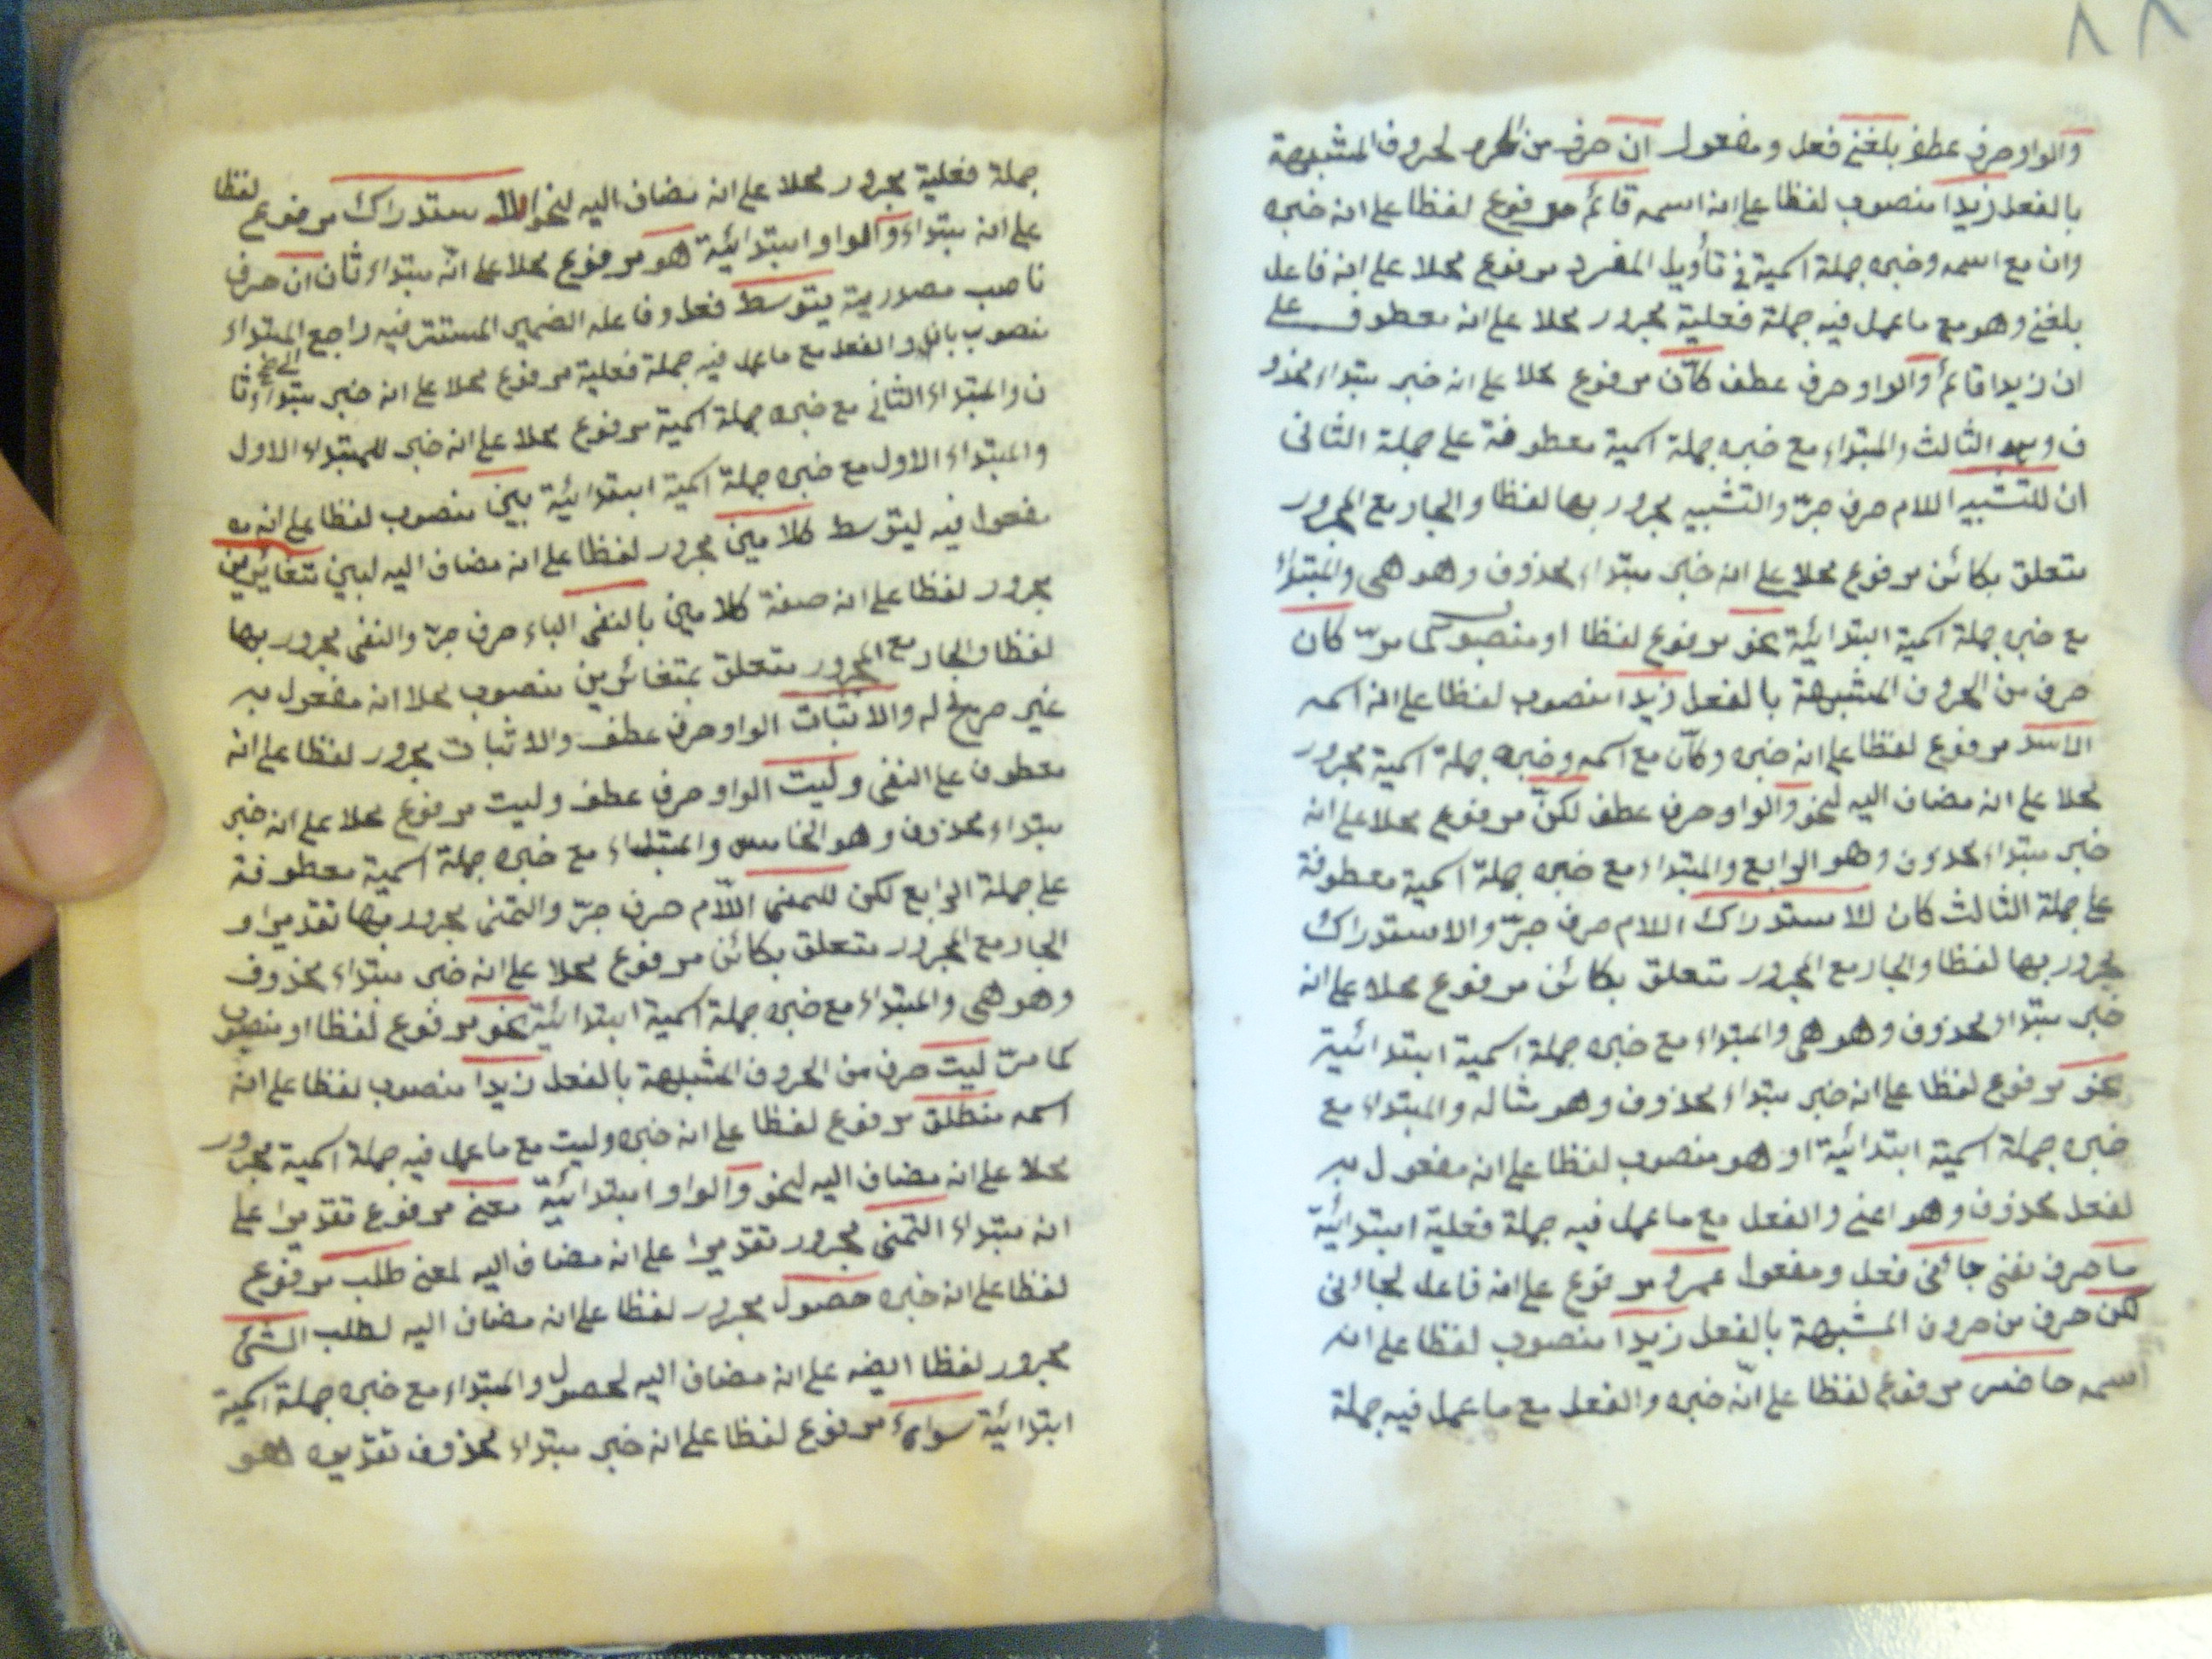 ٨٨
والواو حرف عطف بلغنى فعل ومفعول ان حرف من الحروف المشبهة
بالفعل زيدا منصوب لفظا على انه اسمه قائم مرفوع لفظا على انه خبره
وان مع اسمه وخبره جملة اسمية فى تأويل المفرد مرفوع محلا على انه فاعل
بلغنى وهو مع ما عمل فيه جملة فعلية مجرور محلا على انه معطوف على
ان زيدا قائم والواو حرف عطف كأن مرفوع محلا على انه خبر مبتداء محذو
ف وهو الثالث والمبتداء مع خبره جملة اسمية معطوفة على جملة الثانى
ان للتشبيه اللام حرف جرّ والتشبيه مجرور بها لفظا والجار مع المجرور
متعلق بكائن مرفوع محلا على انه خبر مبتداء محذوف وهو هى والمبتداء
مع خبره جملة اسمية ابتدائية نحو مرفوع لفظا او منصوب كما مرّ كان
حرف من الحروف المشبهة بالفعل زيدا منصوب لفظا على انه اسمه
الاسد مرفوع لفظا على انه خبره وكأن مع اسمه وخبره جملة اسمية مجرور
محلا على انه مضاف اليه لنحو والواو حرف عطف لكنّ مرفوع محلا على انه
خبر مبتداء محذوف وهو الرابع والمبتداء مع خبره جملة اسمية معطوفة
على جملة الثالث كان للاستدراك اللام حرف جرّ والاستدراك
مجرور بها لفظا والجار مع المجرور متعلق بكائن مرفوع محلا على انه
خبر مبتداء محذوف وهو هى والمبتداء مع خبره جملة اسمية ابتدائية
نحو مرفوع لفظا على انه خبر مبتداء محذوف وهو مثاله والمبتداء مع
خبره جملة اسمية ابتدائية او هو منصوب لفظا على انه مفعول به
لفعل محذوف وهو اعنى والفعل مع ما عمل فيه جملة فعلية ابتدائية
ما حرف نفى جائنى فعل ومفعول عمرو مرفوع على انه فاعل لجائنى
لكن حرف من حروف المشبهة بالفعل زيدا منصوب لفظا على انه
اسمه حاضر مرفوع لفظا على انّه خبره والفعل مع ما عمل فيه جملة
جملة فعلية مجرور محلا على انه مضاف اليه لنحو استدراك مرفوع لفظا
على انه مبتداء والواو ابتدائية هو مرفوع محلا على انّه مبتداء ثان ان حرف
ناصب مصدرية يتوسط فعل وفاعله الضمير المستتر فيه راجع المبتداء
منصوب بان والفعل مع ما عمل فيه جملة فعلية مرفوع محلا على انه خبر مبتداء ثا
ن والمبتداء الثانى مع خبره جملة اسمية مرفوع محلا على انه خبر للمبتداء الاول
والمبتداء الاول مع خبره جملة اسمية ابتدائية بين منصوب لفظا على انه
مفعول فيه ليتوسط كلامين مجرور لفظا على انه مضاف اليه لبين متغايرين
مجرور لفظا على انه صفة كلامين بالنفى الباء حرف جرّ والنفى مجرور بها
لفظا والجار مع المجرور متعلق بمتغائرين منصوب محلا انه مفعول به
غير صريح له والاثبات الواو حرف عطف والاثبات مجرور لفظا على انه
معطوف على النفى وليت الواو حرف عطف وليت مرفوع محلا على انه خبر
مبتداء محذوف وهو الخامس والمبتداء مع خبره جملة اسمية معطوفة
على جملة الرابع لكن للتمنى اللّام حرف جرّ والتمنى مجرور بها تقديرا و
الجار مع المجرور متعلق بكائن مرفوع محلا على انه خبر مبتداء محذوف
وهو هى والمبتداء مع خبره جملة اسمية ابتدائية نحو مرفوع لفظا او منصوب
كما مرّ ليت حرف من الحروف المشبهة بالفعل زيدا منصوب لفظا على انه
اسمه منطلق مرفوع لفظا على انه خبره وليت مع ما عمل فيه جملة اسمية مجرور
محلا على انه مضاف اليه لنحو والواو ابتدائية معنى مرفوع تقديرا على
انه مبتداء التمنى مجرور تقديرا على انه مضاف اليه لمعنى طلب مرفوع
لفظا على انه خبره حصول مجرور لفظا على انه مضاف اليه لطلب الشئ
مجرور لفظا ايضه على انه مضاف اليه لحصول والمبتداء مع خبره جملة اسمية
ابتدائية سواء مرفوع لفظا على انه خبر مبتداء محذوف تقديره هو